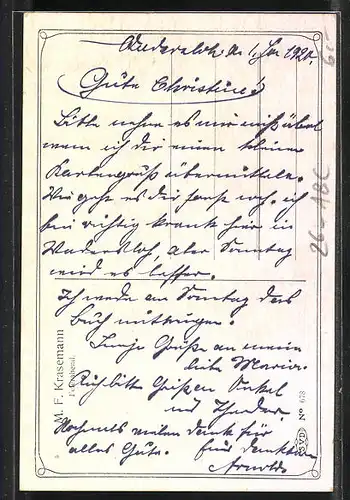 Wadersloh, den 1. Jan 1920.
Gute Christine!
Bitte nehme es mir nicht übel
wenn ich dir einen kleinen
Kartengruß übermittele.
Wie geht es dir sonst noch. ich
bin richtig krank hier in
Wadersloh, aber Sonntag
wird es besser.
Ich werde am Sonntag das
Buch mitbringen.
Grüße an meine
liebe Maria.
Auch bitte Grüßen Onkel
und Theodor.
Nochmals vielen dank für
alles Gute.
Arnold
M. F. Krasemann
SVD
No 678
26-18C